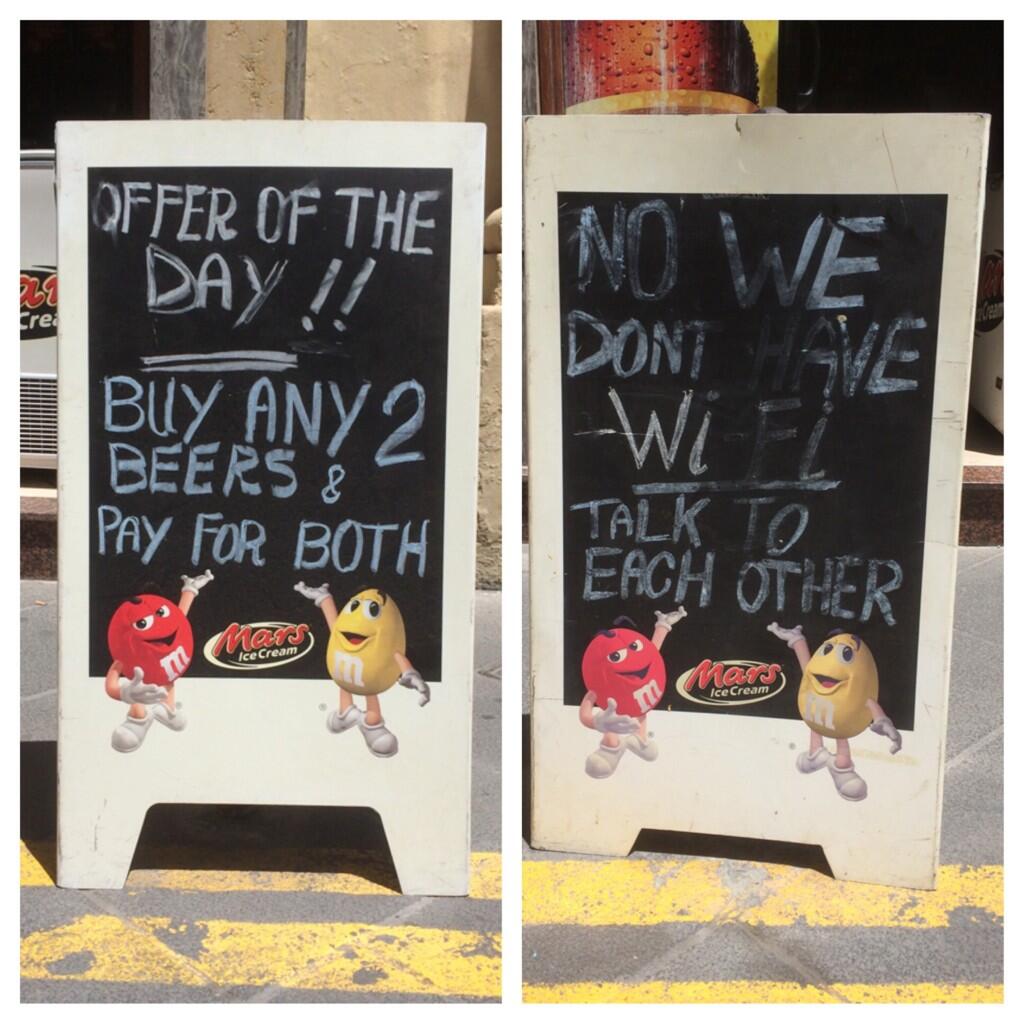 OFFER OF THE
DAY !!
BUY ANY 2
BEERS &
PAY FOR BOTH
Mars
Ice Cream
m
m
NO WE
DONT HAVE
Wi-Fi
TALK TO
EACH OTHER
Mars
Ice Cream
m
m